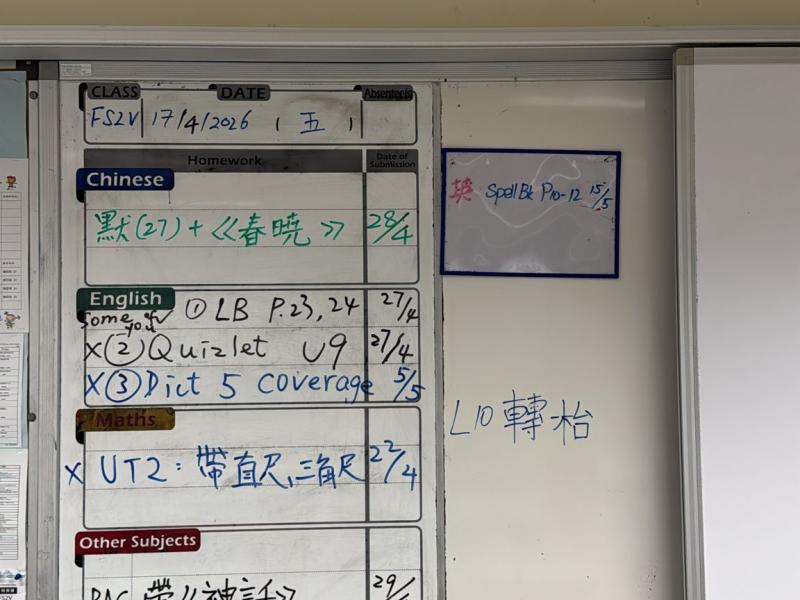 CLASS DATE Absentees
FS2V 17/4/2026 ( 五 )
Homework Date of Submission
Chinese
默(27) + 《春曉》 28/4
English
Some of you ① LB P.23, 24 27/4
X ② Quizlet U9 27/4
X ③ Dict 5 coverage 5/5
Maths
X UT2: 帶直尺、三角尺 22/4
Other Subjects
帶《神話》 29/
英 Spell Bk P10-12 15/5
L10 轉枱